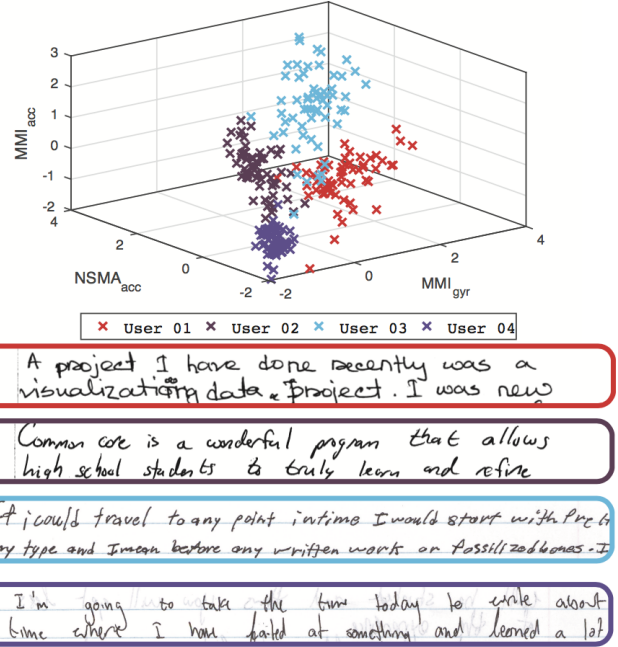 3
2
1
0
-1
-2
MMI acc
4
2
0
-2
NSMA acc
-2
0
2
4
MMI gyr
User 01 User 02 User 03 User 04
A project I have done recently was a
visualization data project. I was new
Common core is a wonderful program that allows
high school students to truly learn and refine
if i could travel to any point in time I would start with Pre h
ny type and I mean before any written work or fossilized bones. I
I'm going to take the time today to write about
time where I have failed at something and learned a lot